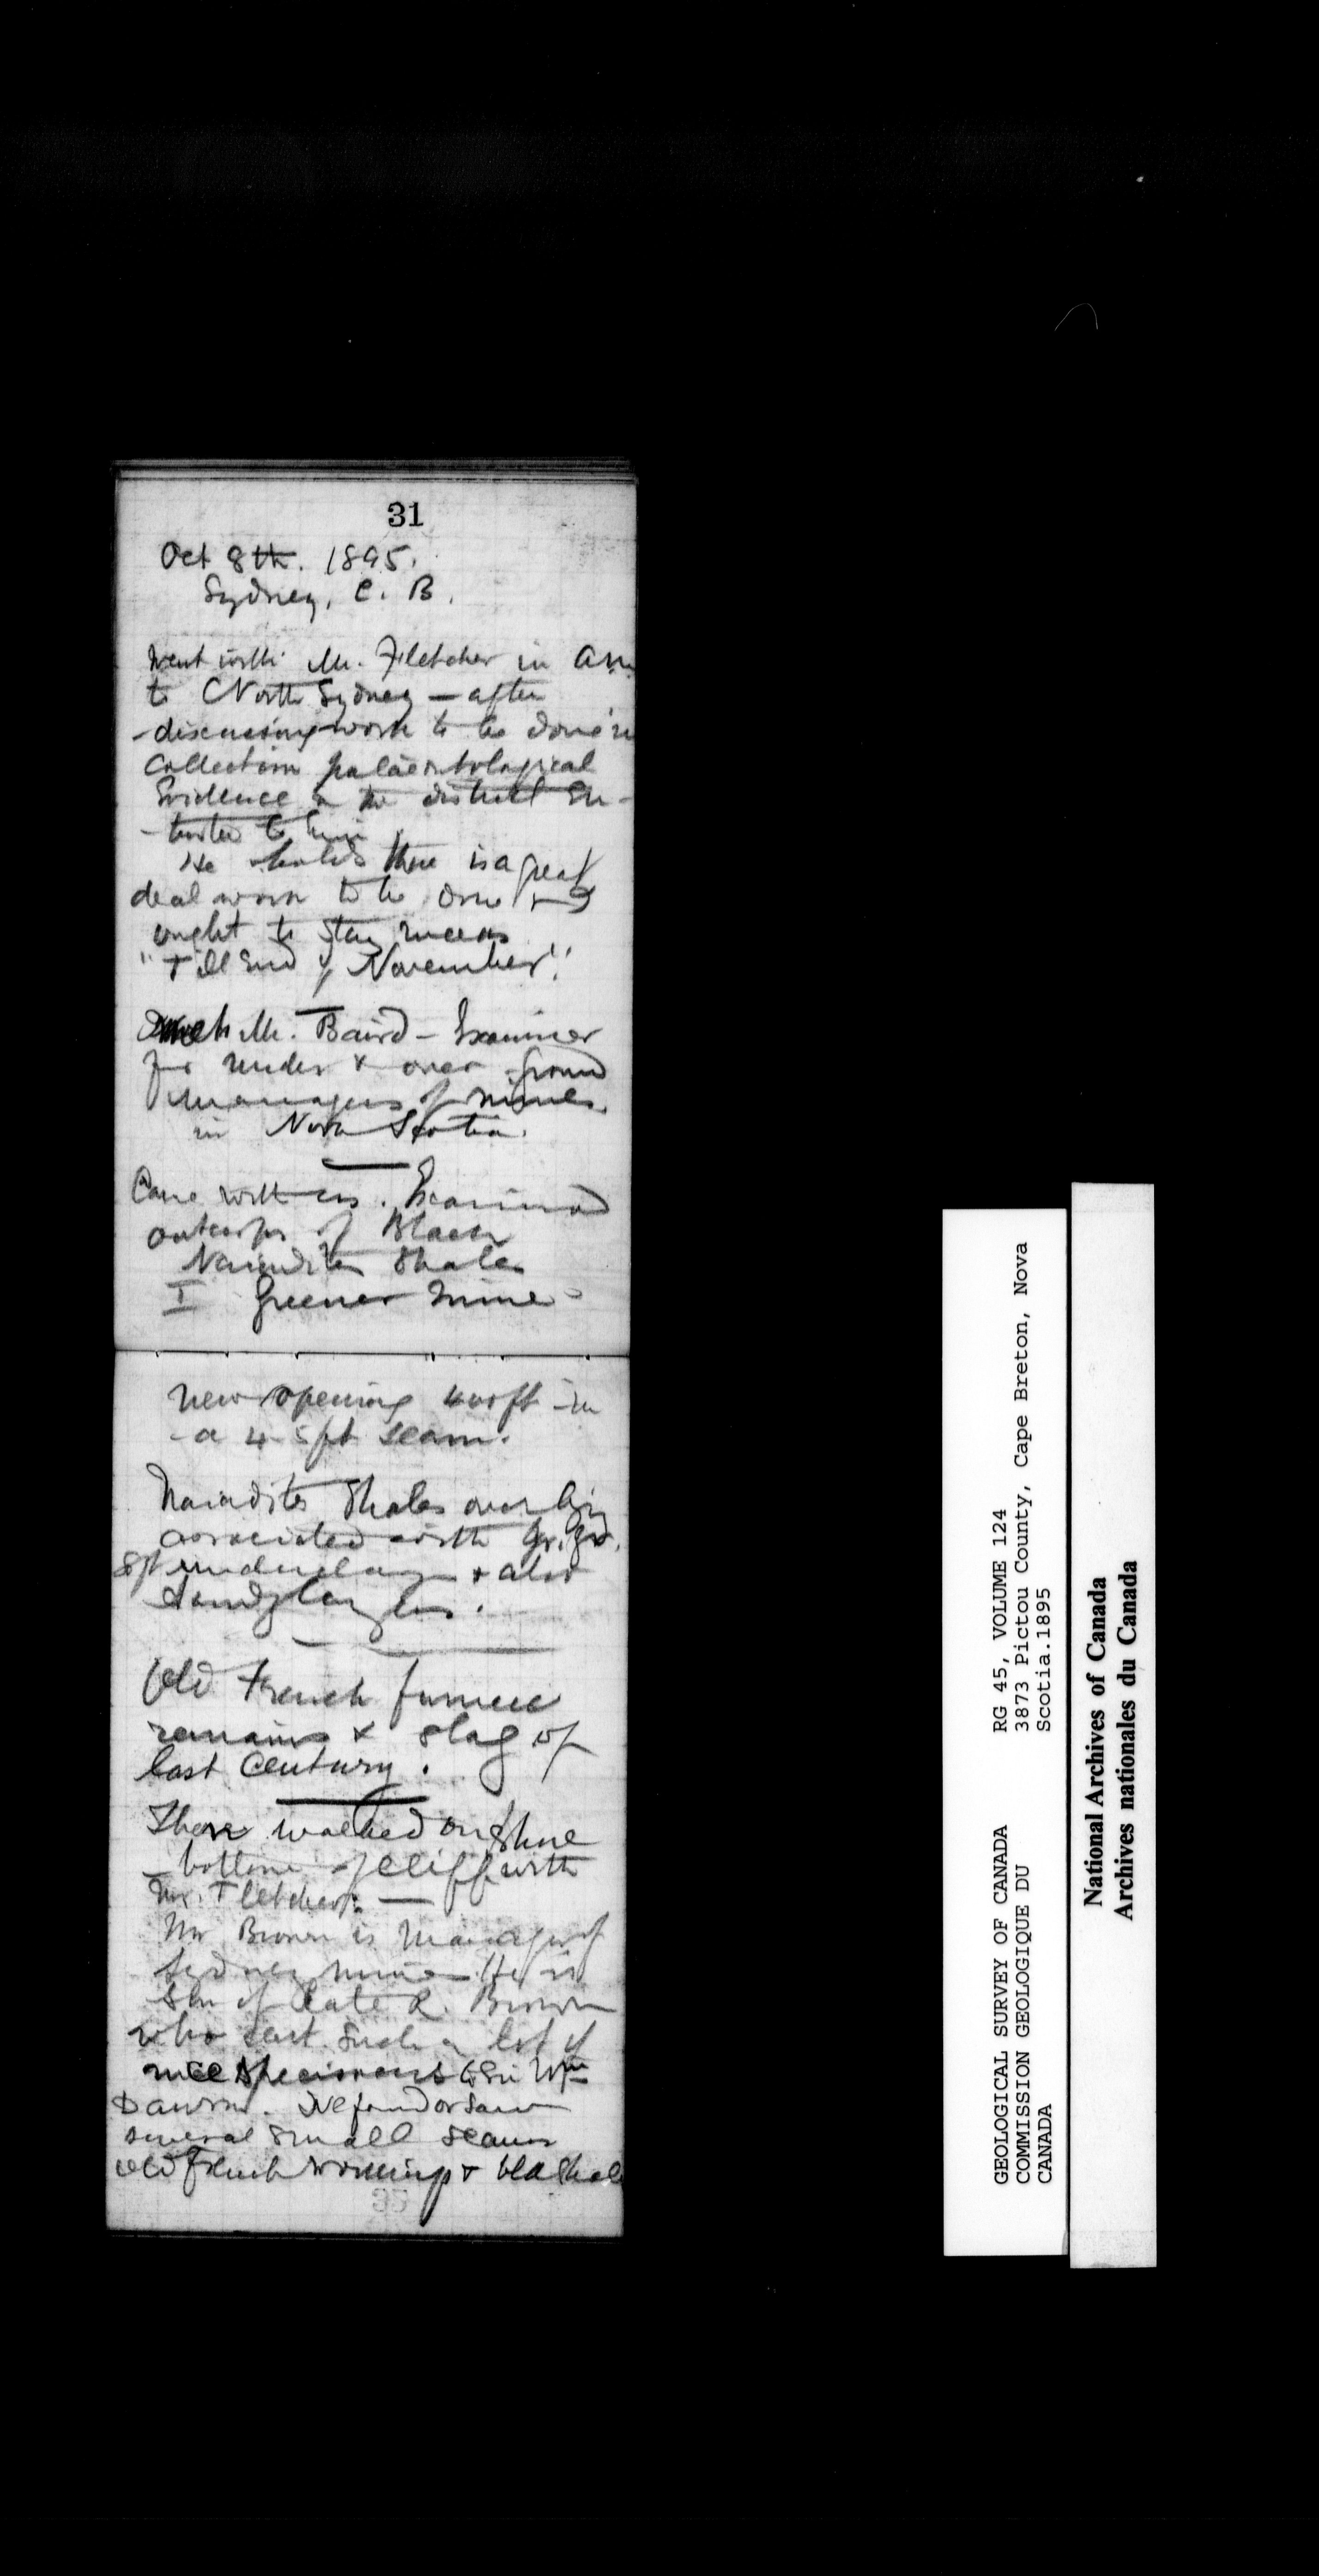 31
Oct 8th. 1895.
Sydney, C. B.
Went with Mr. Fletcher in am
to North Sydney — after
discussing work to be done in
collection palaeontological
Evidence in the district En-
-trusted to him
He holds there is a great
deal work to be done &
ought to stay
"Till End of November".
Mr. Baird - Examiner
for under & over ground
managers of mines
in Nova Scotia.
Came with us. Examined
outcrops of Black
Naiadites Shales
I Greener Mine
new opening 400 ft in
a 4-5 ft seam.
Naiadites Shales overlying
associated with gr.
8ft underclay & also
Old French furnace
remains & slag of
last Century.
Then walked on Shore
bottom of cliff with
Mr. Fletcher. —
Mr Brown is Manager of
Sydney mine. He is
Son of late R. Brown
who sent such a lot of
nice specimens to Sir Wm
Dawson. We found or saw
several small seams
old French workings & blk Shale
GEOLOGICAL SURVEY OF CANADA
COMMISSION GEOLOGIQUE DU
CANADA
RG 45, VOLUME 124
3873 Pictou County, Cape Breton, Nova
Scotia.1895
National Archives of Canada
Archives nationales du Canada